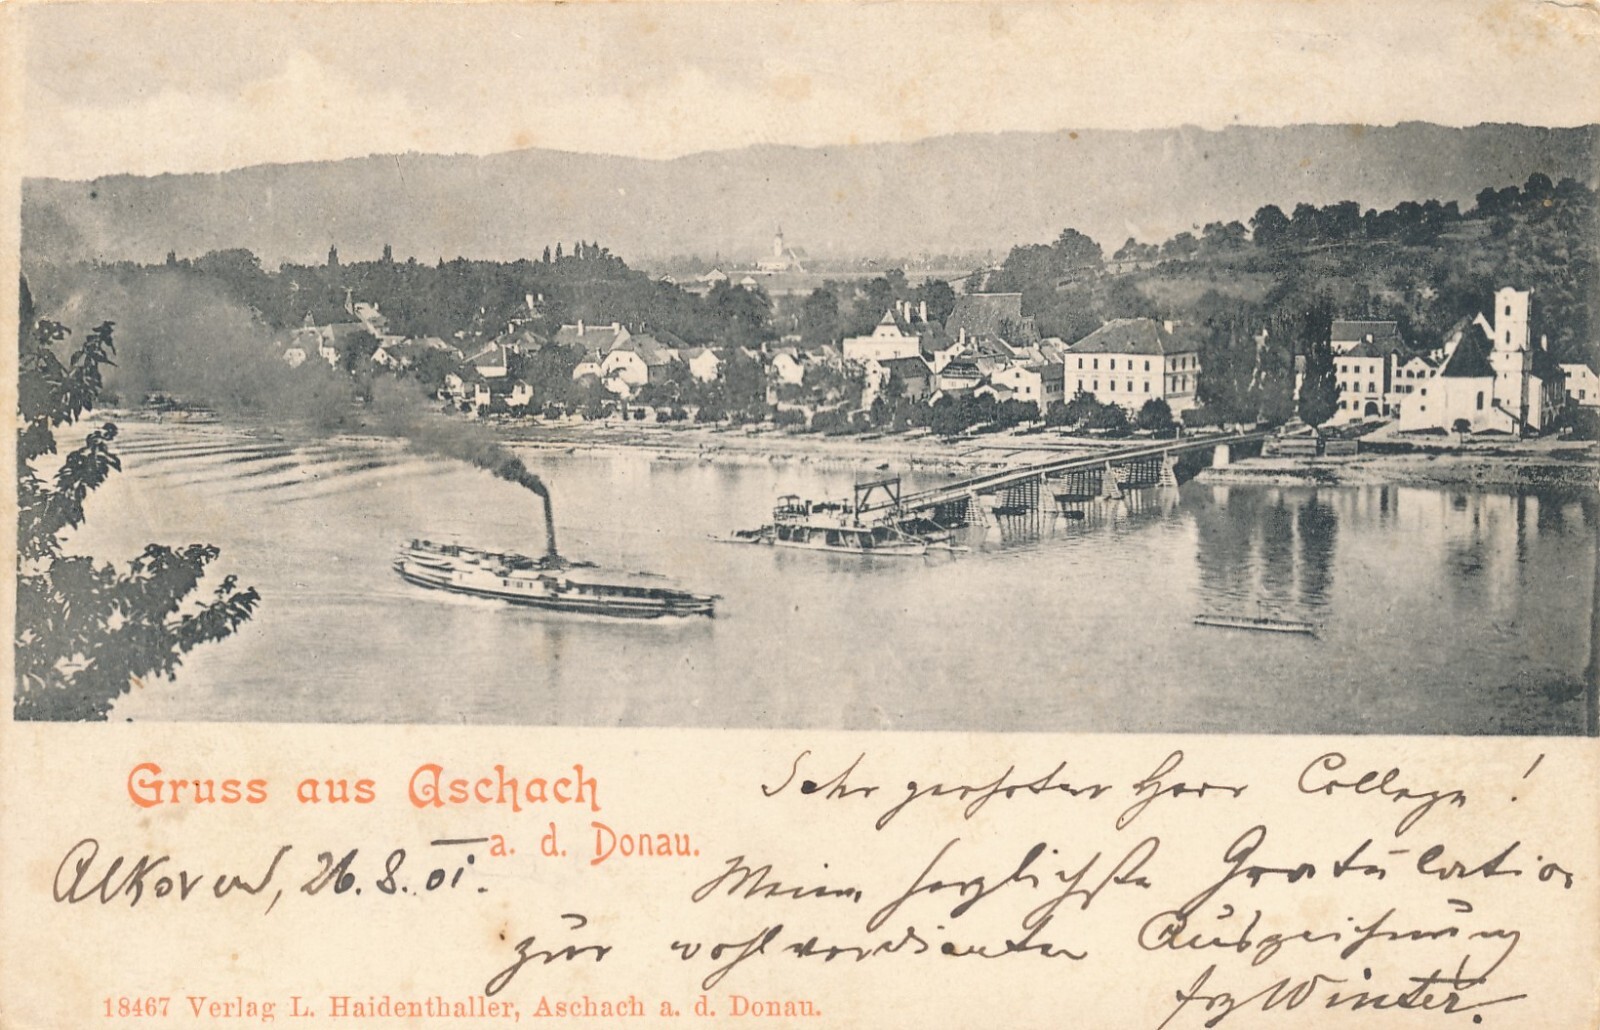 Gruss aus Aschach
a. d. Donau.
Sehr geehrter Herr College!
Alkoven, 26.8.01.
Meine herzlichste Gratulation
zur wohlverdienten Auszeichnung
Winter.
18467 Verlag L. Haidenthaller, Aschach a. d. Donau.